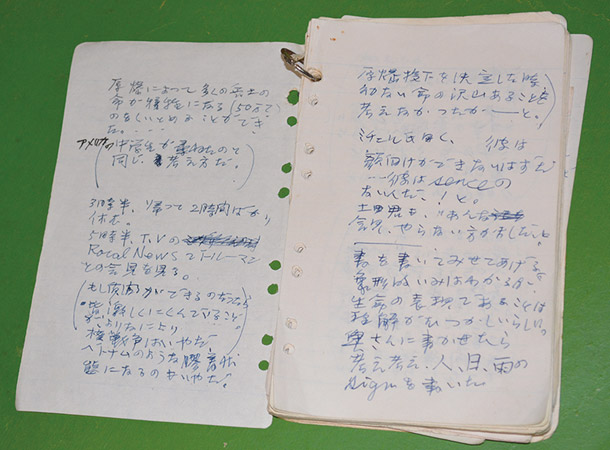 原爆によって多くの兵士の
命が犠牲になる(50万で)
のをくいとめることができ
た。....
アメリカの中学生が尋ねたのと
同じ考え方だ。
3時半、帰って2時間ばかり
休む。
5時半、T.Vの
Rocal Newsでトルーマン
との会見を見る。
もし質問ができるのだったら
皆激しくにくんでいること
なにより
核戦争はいやだ。
ベトナムのような膠着状
態になるのもいやだ。
原爆投下を決定した時
幼ない命の沢山あることを
考えなかったか――と。
ミチエル曰く、彼は
顔向けができないはずだ
……彼はsenceの
ない人だ、!と。
土田君も、"あんな
会見、やらない方がましだ"と
書を書いてみせてあげる。
象形的いみはわかるが
生命の表現であることは
理解がむつかしいらしい。
奥さんに書かせたら
考え考え、人、日、雨の
signを書いた